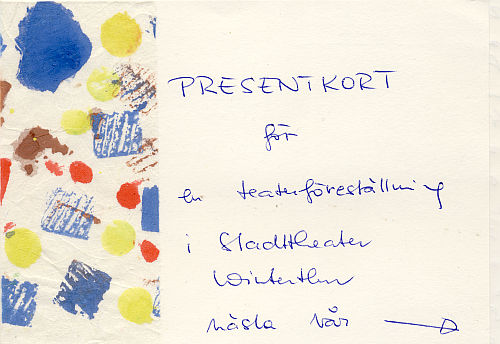 PRESENTKORT
för
en teaterföreställning
i Stadttheater
Winterthur
nästa vår →